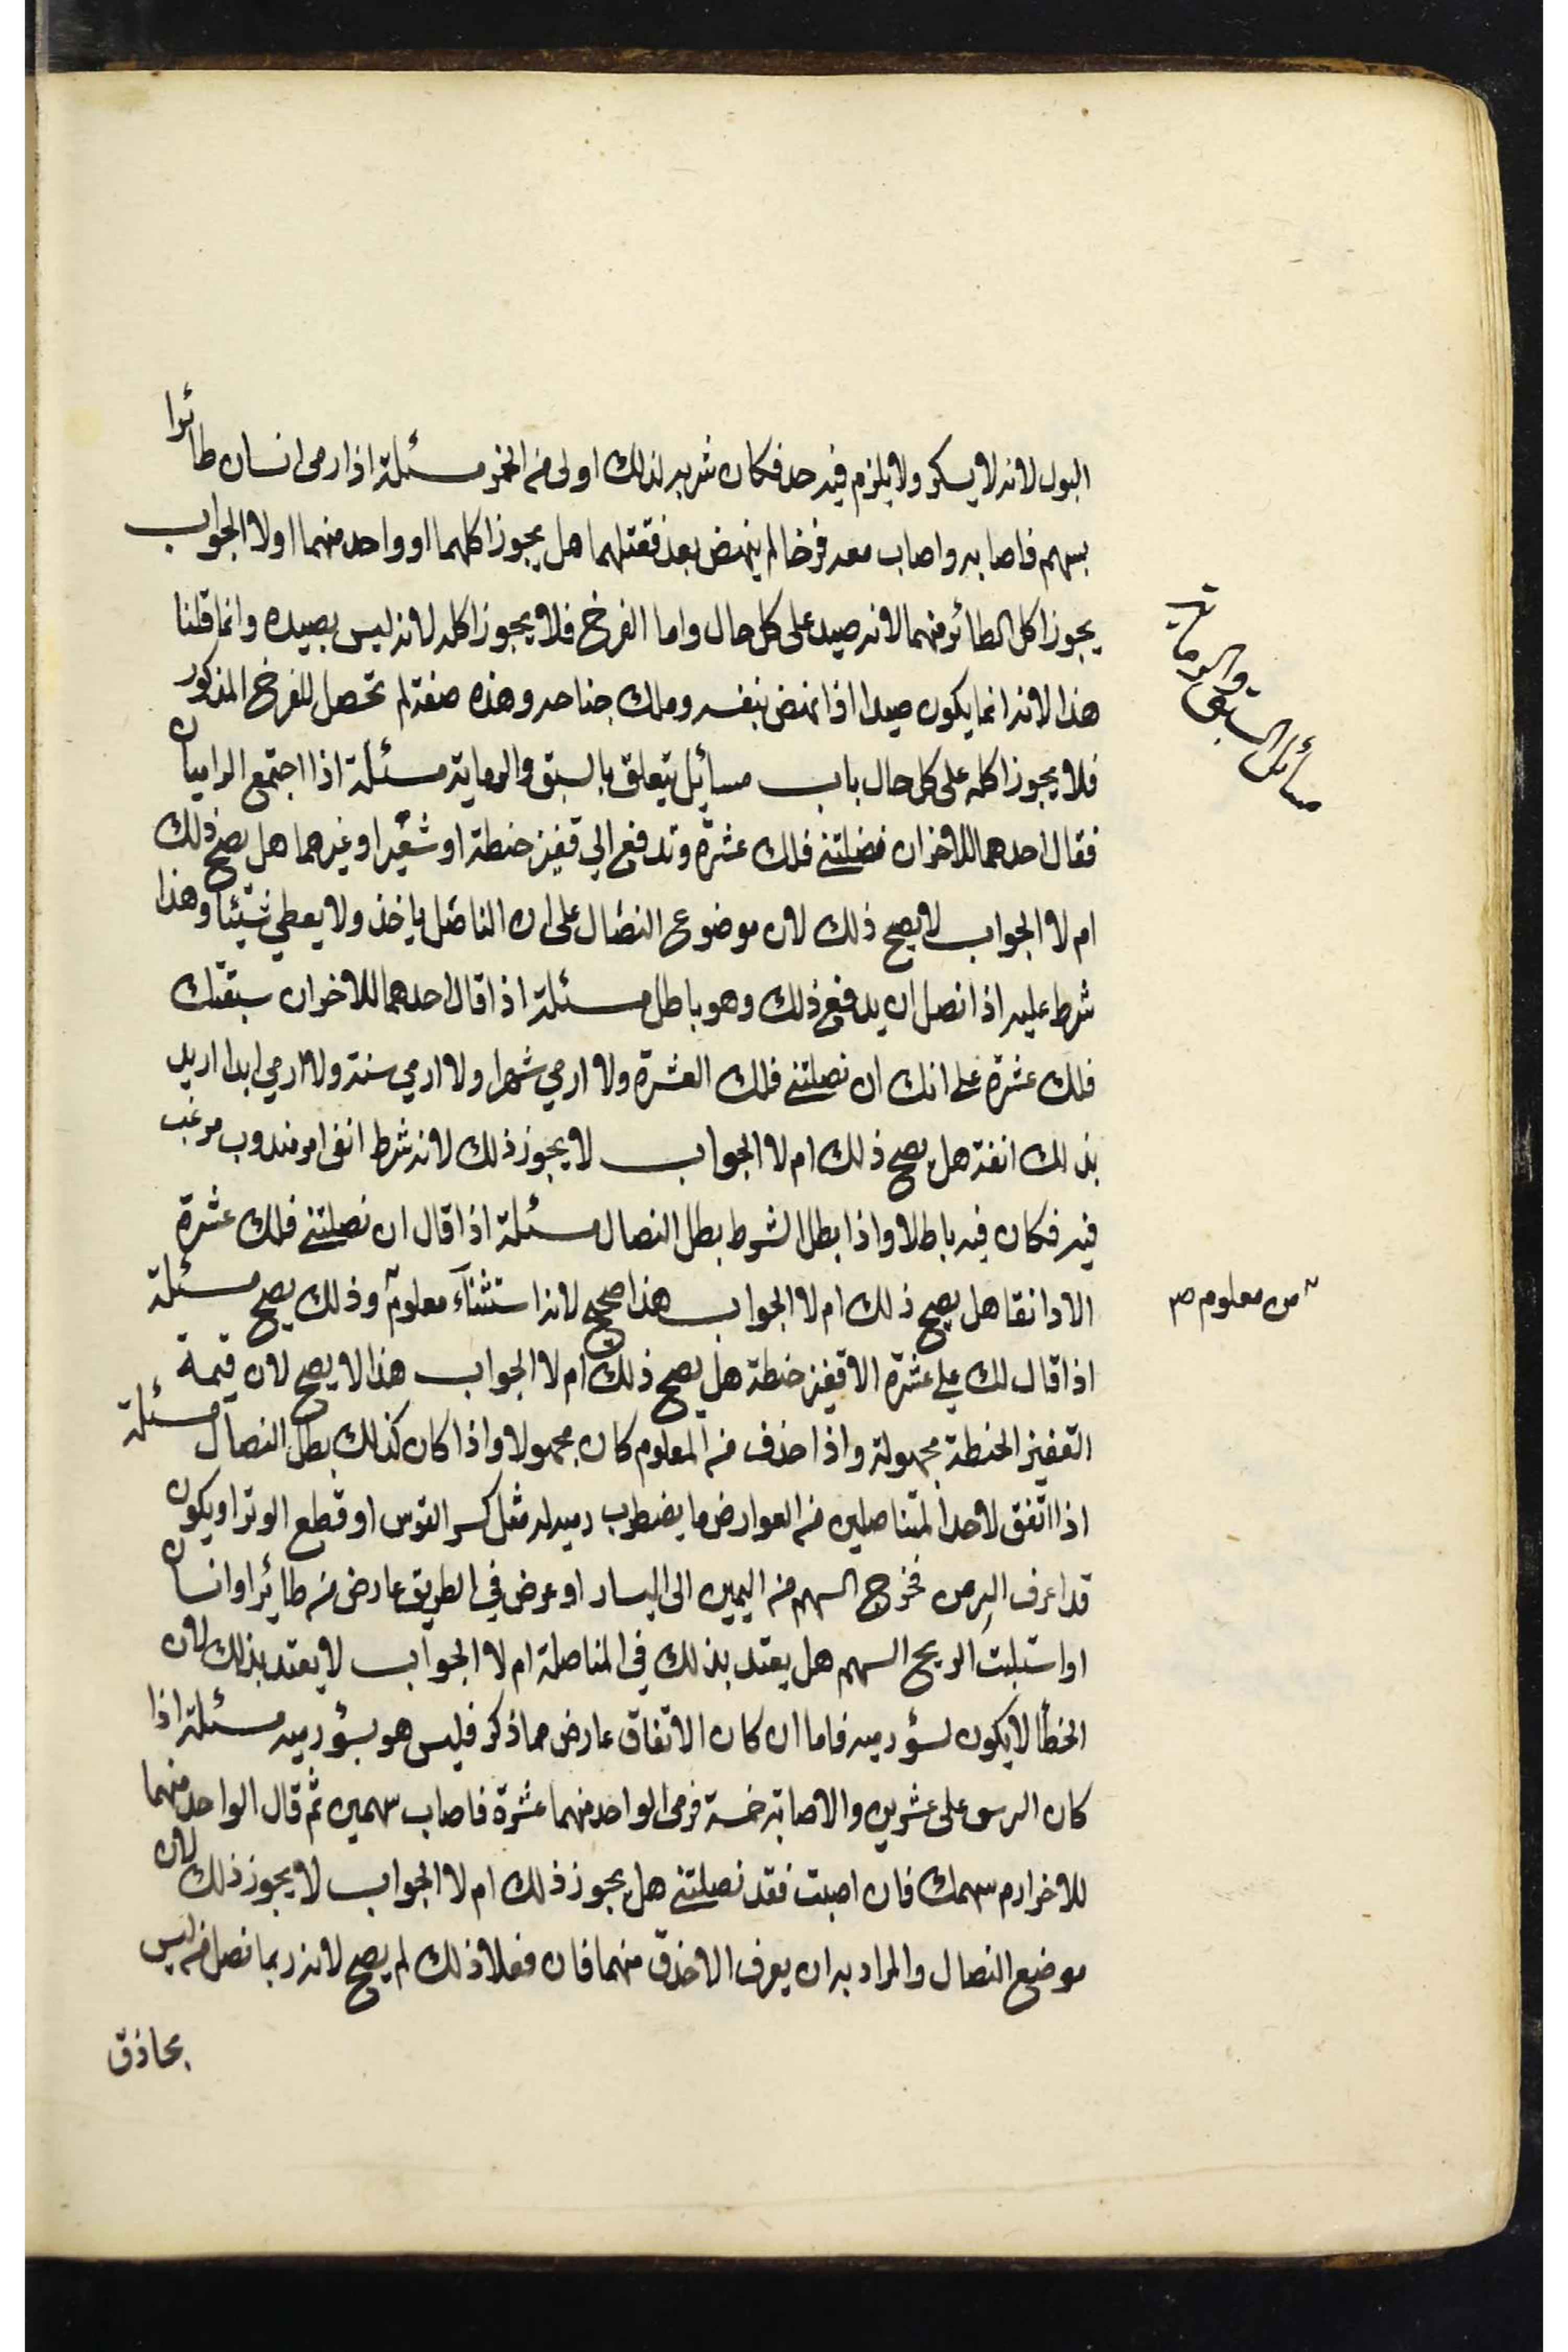 البول لانه لا يسكر ولا يلزم فيه حد فكان شربه لذلك اولى من الخمر مسئلة اذا رمى انسان طائرا
بسهم فاصابه واصاب معه فرخا لم ينهض بعد فقتلهما هل يجوز اكلهما او واحد منهما اولا الجواب
يجوز اكل الطائر منهما لانه صيد على كل حال واما الفرخ فلا يجوز اكله لانه ليس بصيد وانما قلنا
هذا لانه انما يكون صيدا اذا نهض بنفسه وملك جناحه وهذه صفة لم تحصل للفرخ المذكور
فلا يجوز اكله على كل حال باب مسايل يتعلق بالسبق والرماية مسئلة اذا اجتمع الراميان
فقال احدهما للاخر ان نضلتني فلك عشرة وتدفع الي قفيز حنطة او شعير او غيرهما هل يصح ذلك
ام لا الجواب لا يصح ذلك لان موضوع النضال على ان الناضل ياخذ ولا يعطي شيئا وهذا
شرط عليه اذا نصل ان يدفع ذلك وهو باطل مسئلة اذا قال احدهما للاخر ان سبقتك
فلك عشرة على انك ان نصلتني فلك العشرة ولا ارمي شهرا ولا ارمي سنة ولا ارمي ابدا اريد
بذلك انفة هل يصح ذلك ام لا الجواب لا يجوز ذلك لانه شرط انفى امر مندوب مرغب
فيه فكان فيه باطلا واذا بطل الشرط بطل النصال مسئلة اذا قال ان نصلتني فلك عشرة
الا دانقا هل يصح ذلك ام لا الجواب هذا صحيح لانه استثناء معلوم وذلك يصح مسئلة
اذا قال لك علي عشرة الا قفيز حنطة هل يصح ذلك ام لا الجواب هذا لا يصح لان قيمة
القفيز الحنطة مجهولة واذا حذف من المعلوم كان مجهولا واذا كان كذلك بطل النصال مسئلة
اذا اتفق لاحد المتناصلين من العوارض ما يضطرب رميه له مثل كسر القوس او قطع الوتر او يكون
قد اغرف النرس فخرج السهم من اليمين الى اليسار او عرض في الطريق عارض من طائر او انسان
او استلبت الريح السهم هل يعتد بذلك في المناصلة ام لا الجواب لا يعتد بذلك لان
الخطأ لا يكون لسؤ رميه فاما ان كان الاتفاق عارض مما ذكر فليس هو بسؤ رميه مسئلة اذا
كان الرسق على عشرين والاصابة خمسة فرمى الواحد منهما عشرة فاصاب سهمين ثم قال الواحد منهما
للاخر ارم سهمك فان اصبت فقد نصلتني هل يجوز ذلك ام لا الجواب لا يجوز ذلك لان
موضع النصال والمراد به ان يعرف الاحذق منهما فان فعلا ذلك لم يصح لانه ربما نصل من ليس
بحاذق
مسائل السبق والرماية
من معلوم صح